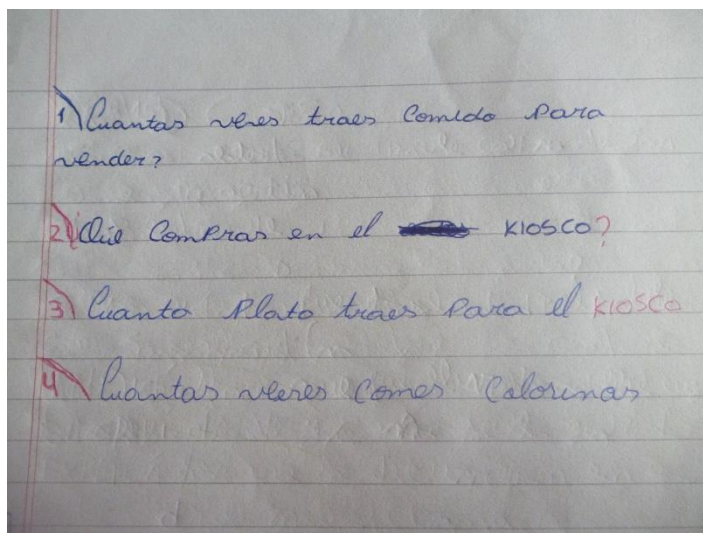 1) Cuantas veces traes Comida Para
vender?
2) Qué Compras en el KIOSCO?
3) Cuanto Plata traes Para el KIOSCO
4) Cuantas veces Comes Calorinas